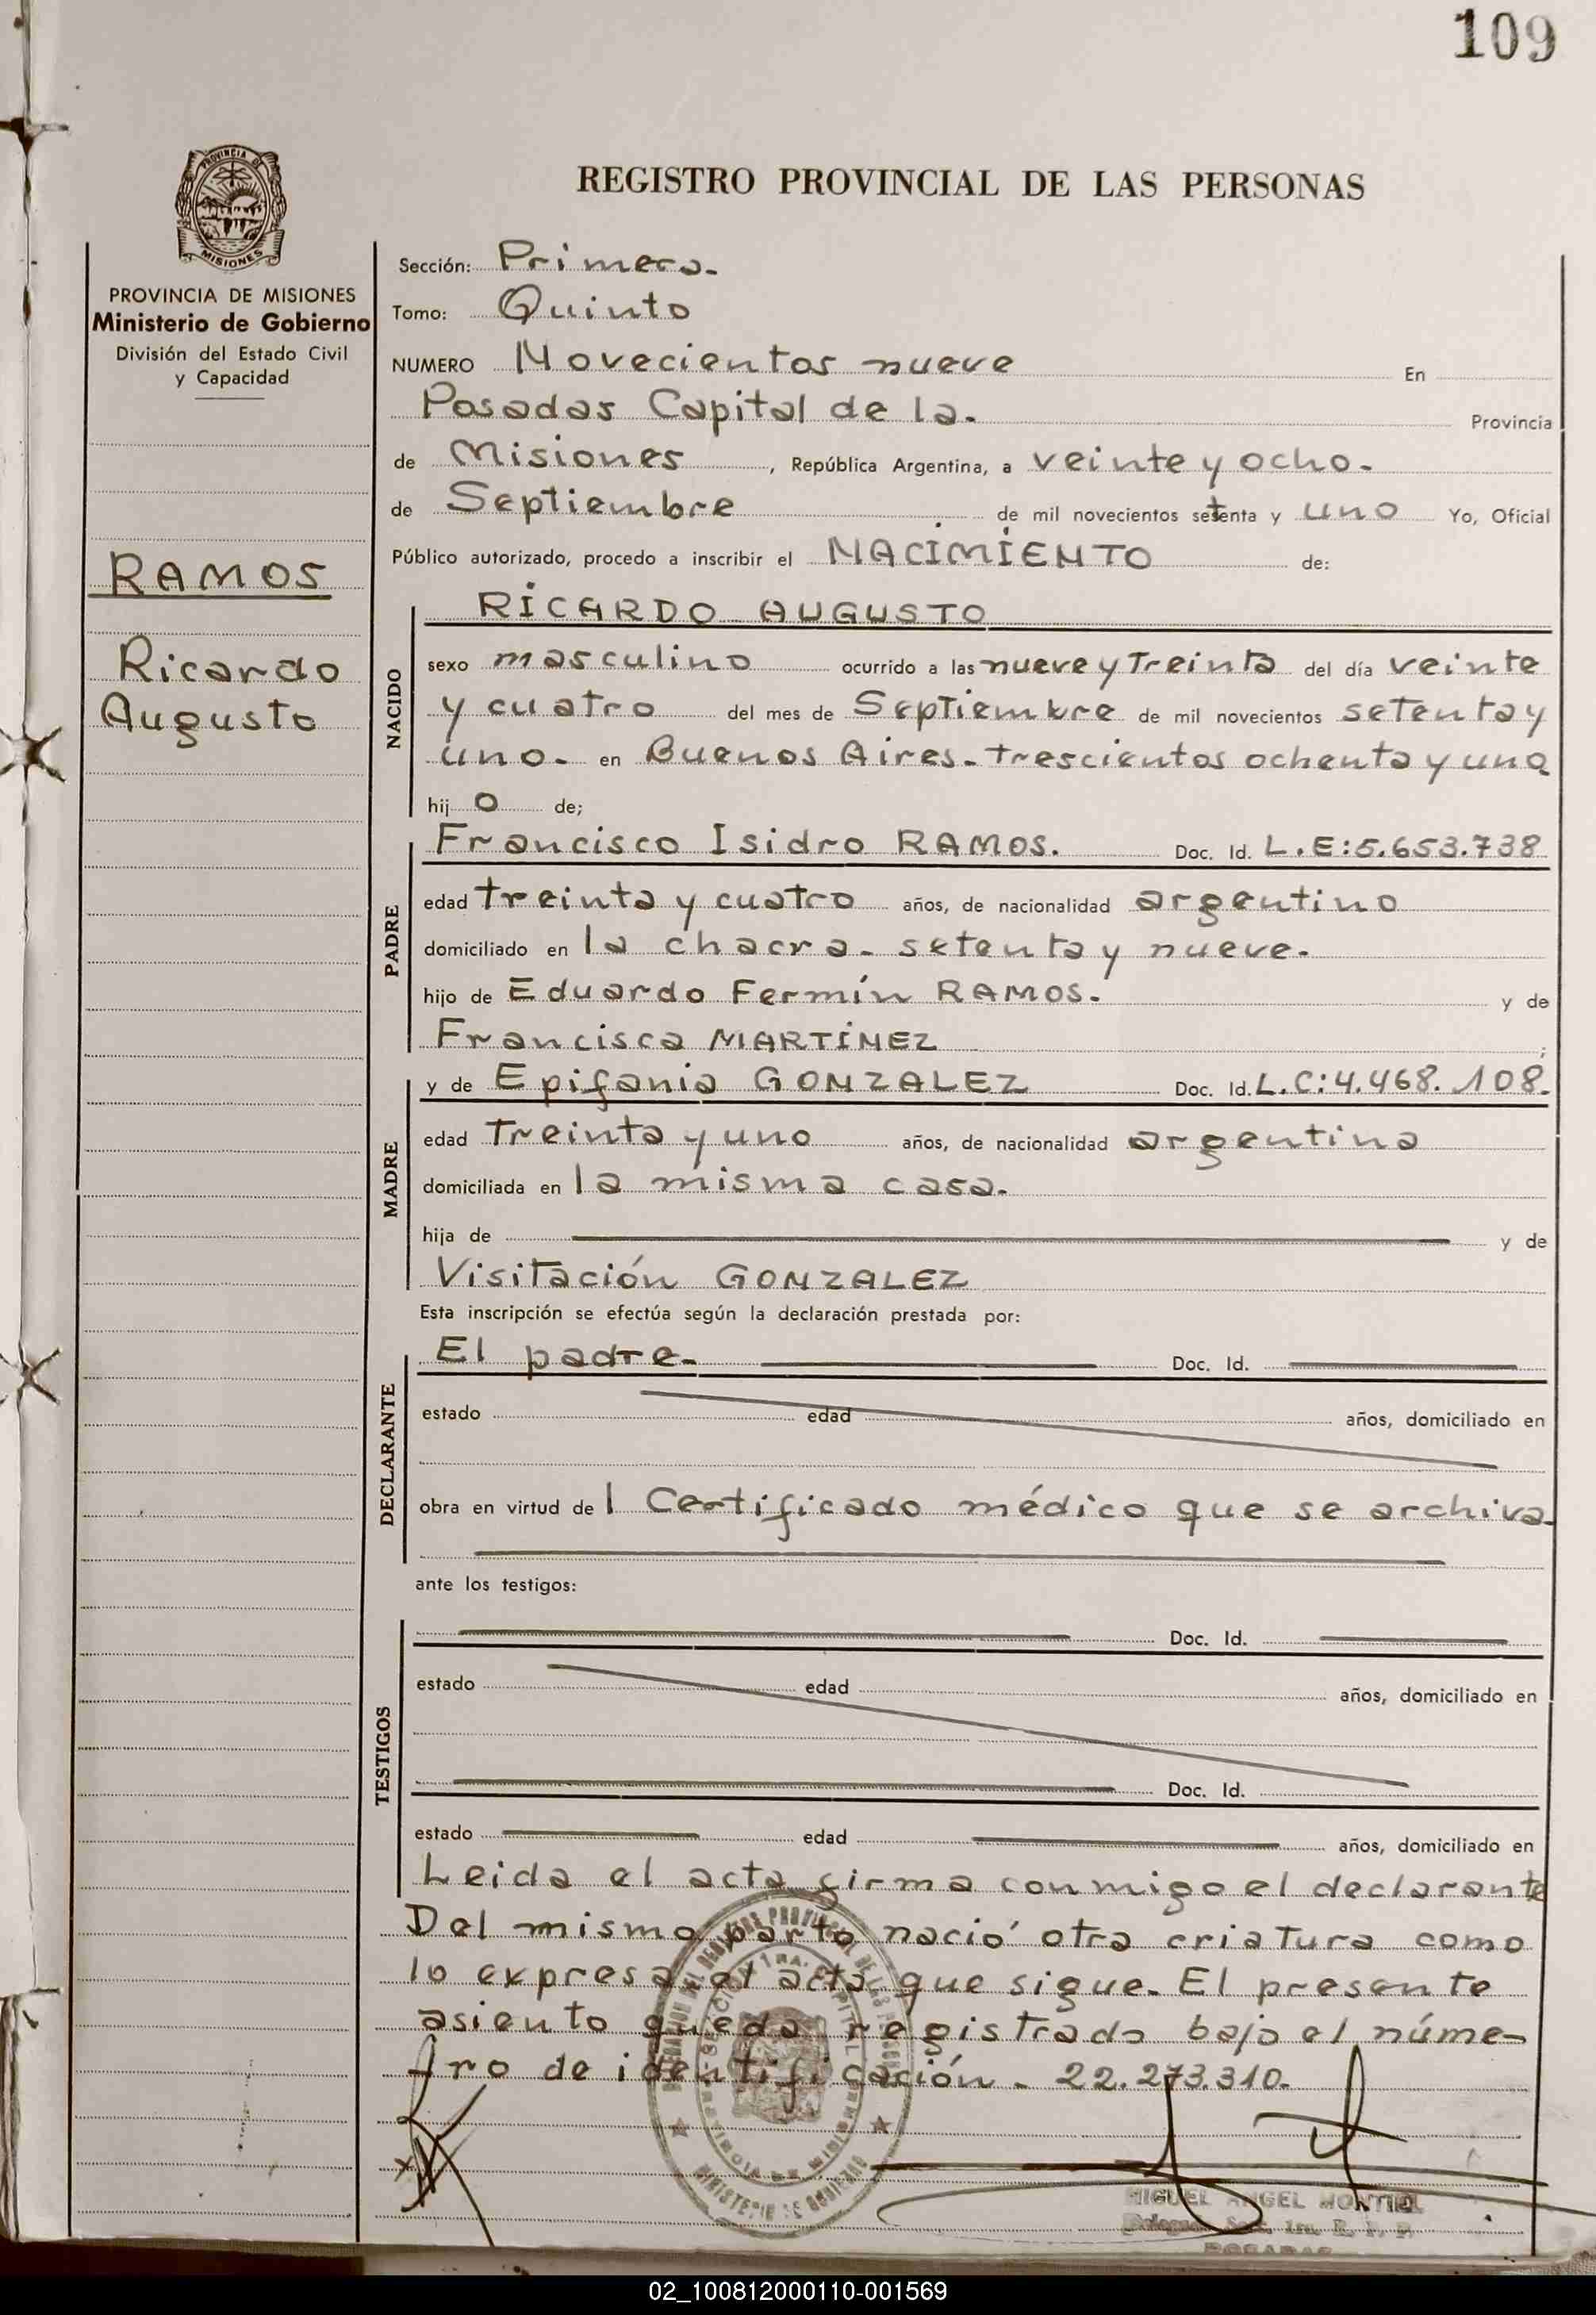 109
REGISTRO PROVINCIAL DE LAS PERSONAS
PROVINCIA DE MISIONES
Ministerio de Gobierno
División del Estado Civil
y Capacidad
RAMOS
Ricardo
Augusto
Sección: Primera.
Tomo: Quinto
NUMERO Novecientos nueve En
Posadas Capital de la. Provincia
de Misiones, República Argentina, a veinte y ocho.
de Septiembre de mil novecientos setenta y uno Yo, Oficial
Público autorizado, procedo a inscribir el NACIMIENTO de:
NACIDO
RICARDO AUGUSTO
sexo masculino ocurrido a las nueve y Treinta del día veinte
y cuatro del mes de Septiembre de mil novecientos setenta y
uno. en Buenos Aires. trescientos ochenta y uno
hijo de;
PADRE
Francisco Isidro RAMOS. Doc. Id. L.E:5.653.738
edad treinta y cuatro años, de nacionalidad argentino
domiciliado en la chacra. setenta y nueve.
hijo de Eduardo Fermín RAMOS. y de
Francisca MARTÍNEZ ;
MADRE
y de Epifania GONZALEZ Doc. Id. L.C:4.468.108.
edad Treinta y uno años, de nacionalidad argentina
domiciliada en la misma casa.
hija de y de
Visitación GONZALEZ
Esta inscripción se efectúa según la declaración prestada por:
DECLARANTE
El padre. Doc. Id.
estado edad años, domiciliado en
obra en virtud del Certificado médico que se archiva.
ante los testigos:
TESTIGOS
Doc. Id.
estado edad años, domiciliado en
Doc. Id.
estado edad años, domiciliado en
Leida el acta firma conmigo el declarante
Del mismo parto nació otra criatura como
lo expresa el acta que sigue. El presente
asiento queda registrado bajo el núme-
ro de identificación. 22.273.310.
MIGUEL ANGEL MONTIEL
POSADAS
02_100812000110-001569